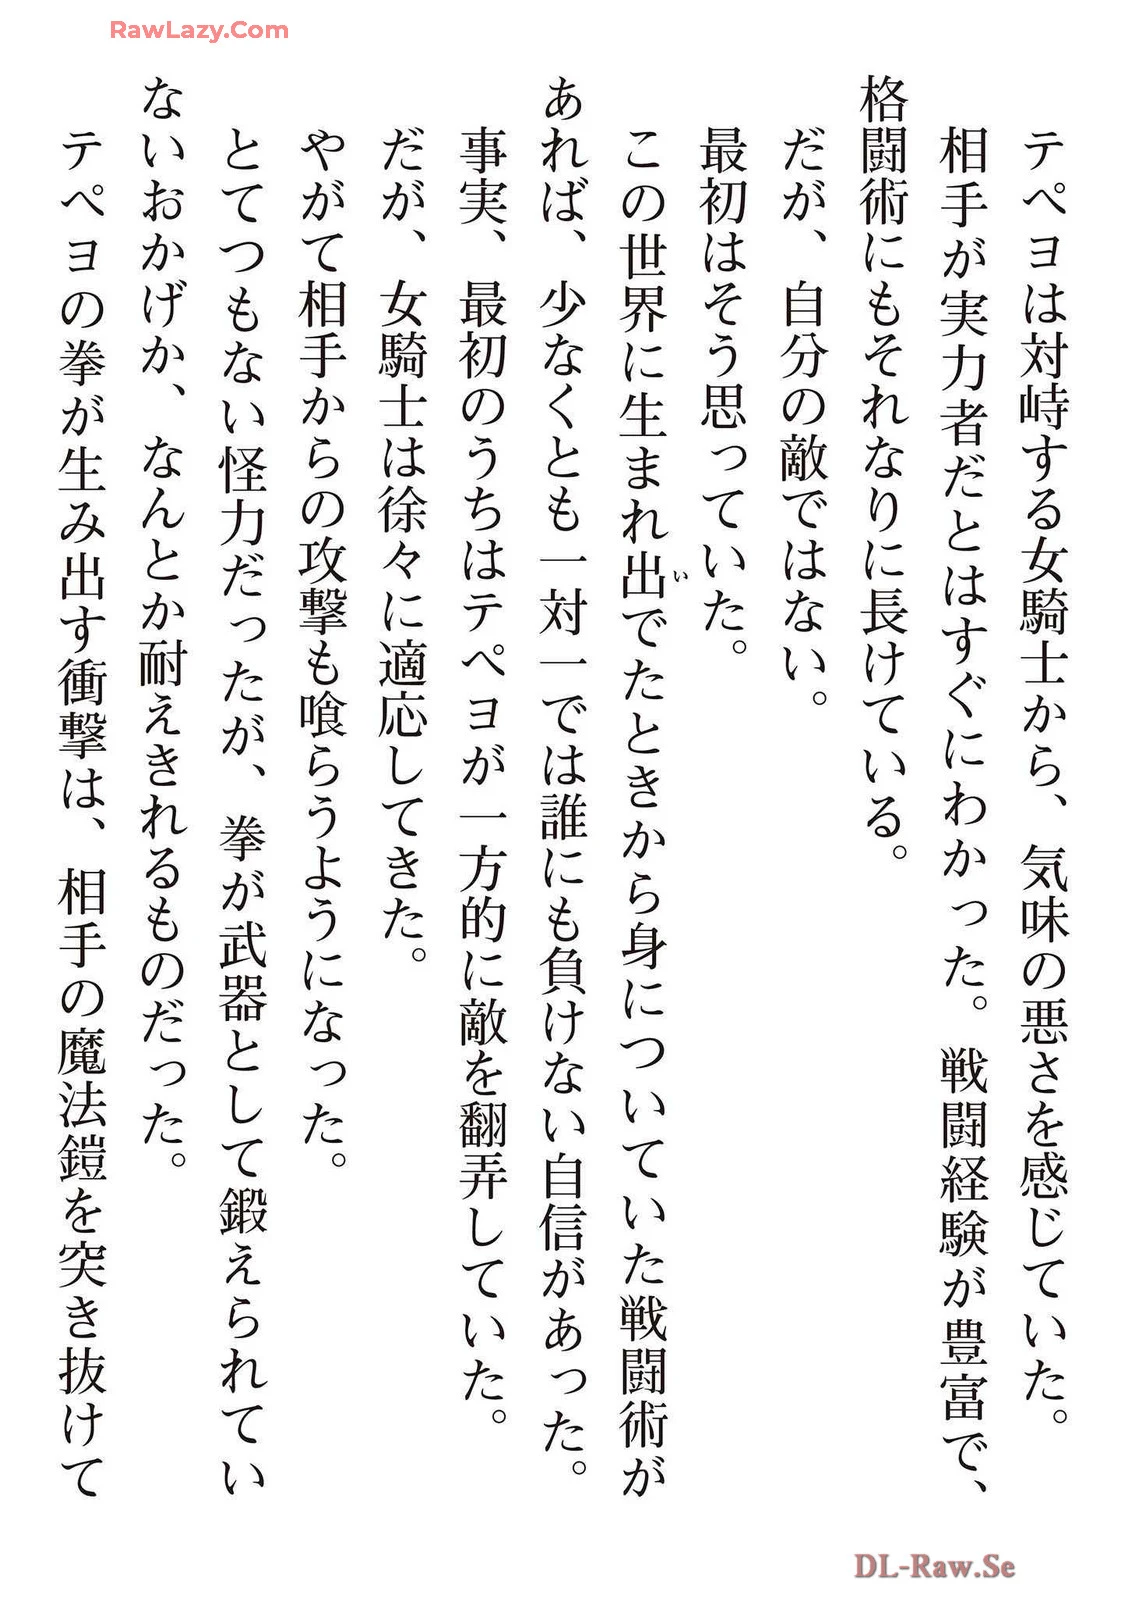 RawLazy.Com
テペヨは対峙する女騎士から、気味の悪さを感じていた。
相手が実力者だとはすぐにわかった。戦闘経験が豊富で、
格闘術にもそれなりに長けている。
だが、自分の敵ではない。
最初はそう思っていた。
この世界に生まれ出でたときから身についていた戦闘術が
あれば、少なくとも一対一では誰にも負けない自信があった。
事実、最初のうちはテペヨが一方的に敵を翻弄していた。
だが、女騎士は徐々に適応してきた。
やがて相手からの攻撃も喰らうようになった。
とてつもない怪力だったが、拳が武器として鍛えられてい
ないおかげか、なんとか耐えきれるものだった。
テペヨの拳が生み出す衝撃は、相手の魔法鎧を突き抜けて
い
DL-Raw.Se